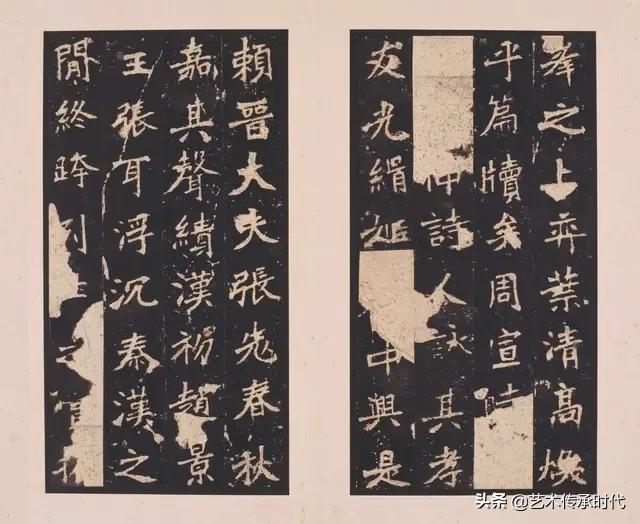 峯之上弈葉清高煥
乎篇牘矣周宣時
仲詩人詠其孝
友光緝姬中興是
賴晉大夫張老春秋
嘉其聲績漢初趙景
王張耳浮沉秦漢之
閒終跨列之
头条 @艺术传承时代